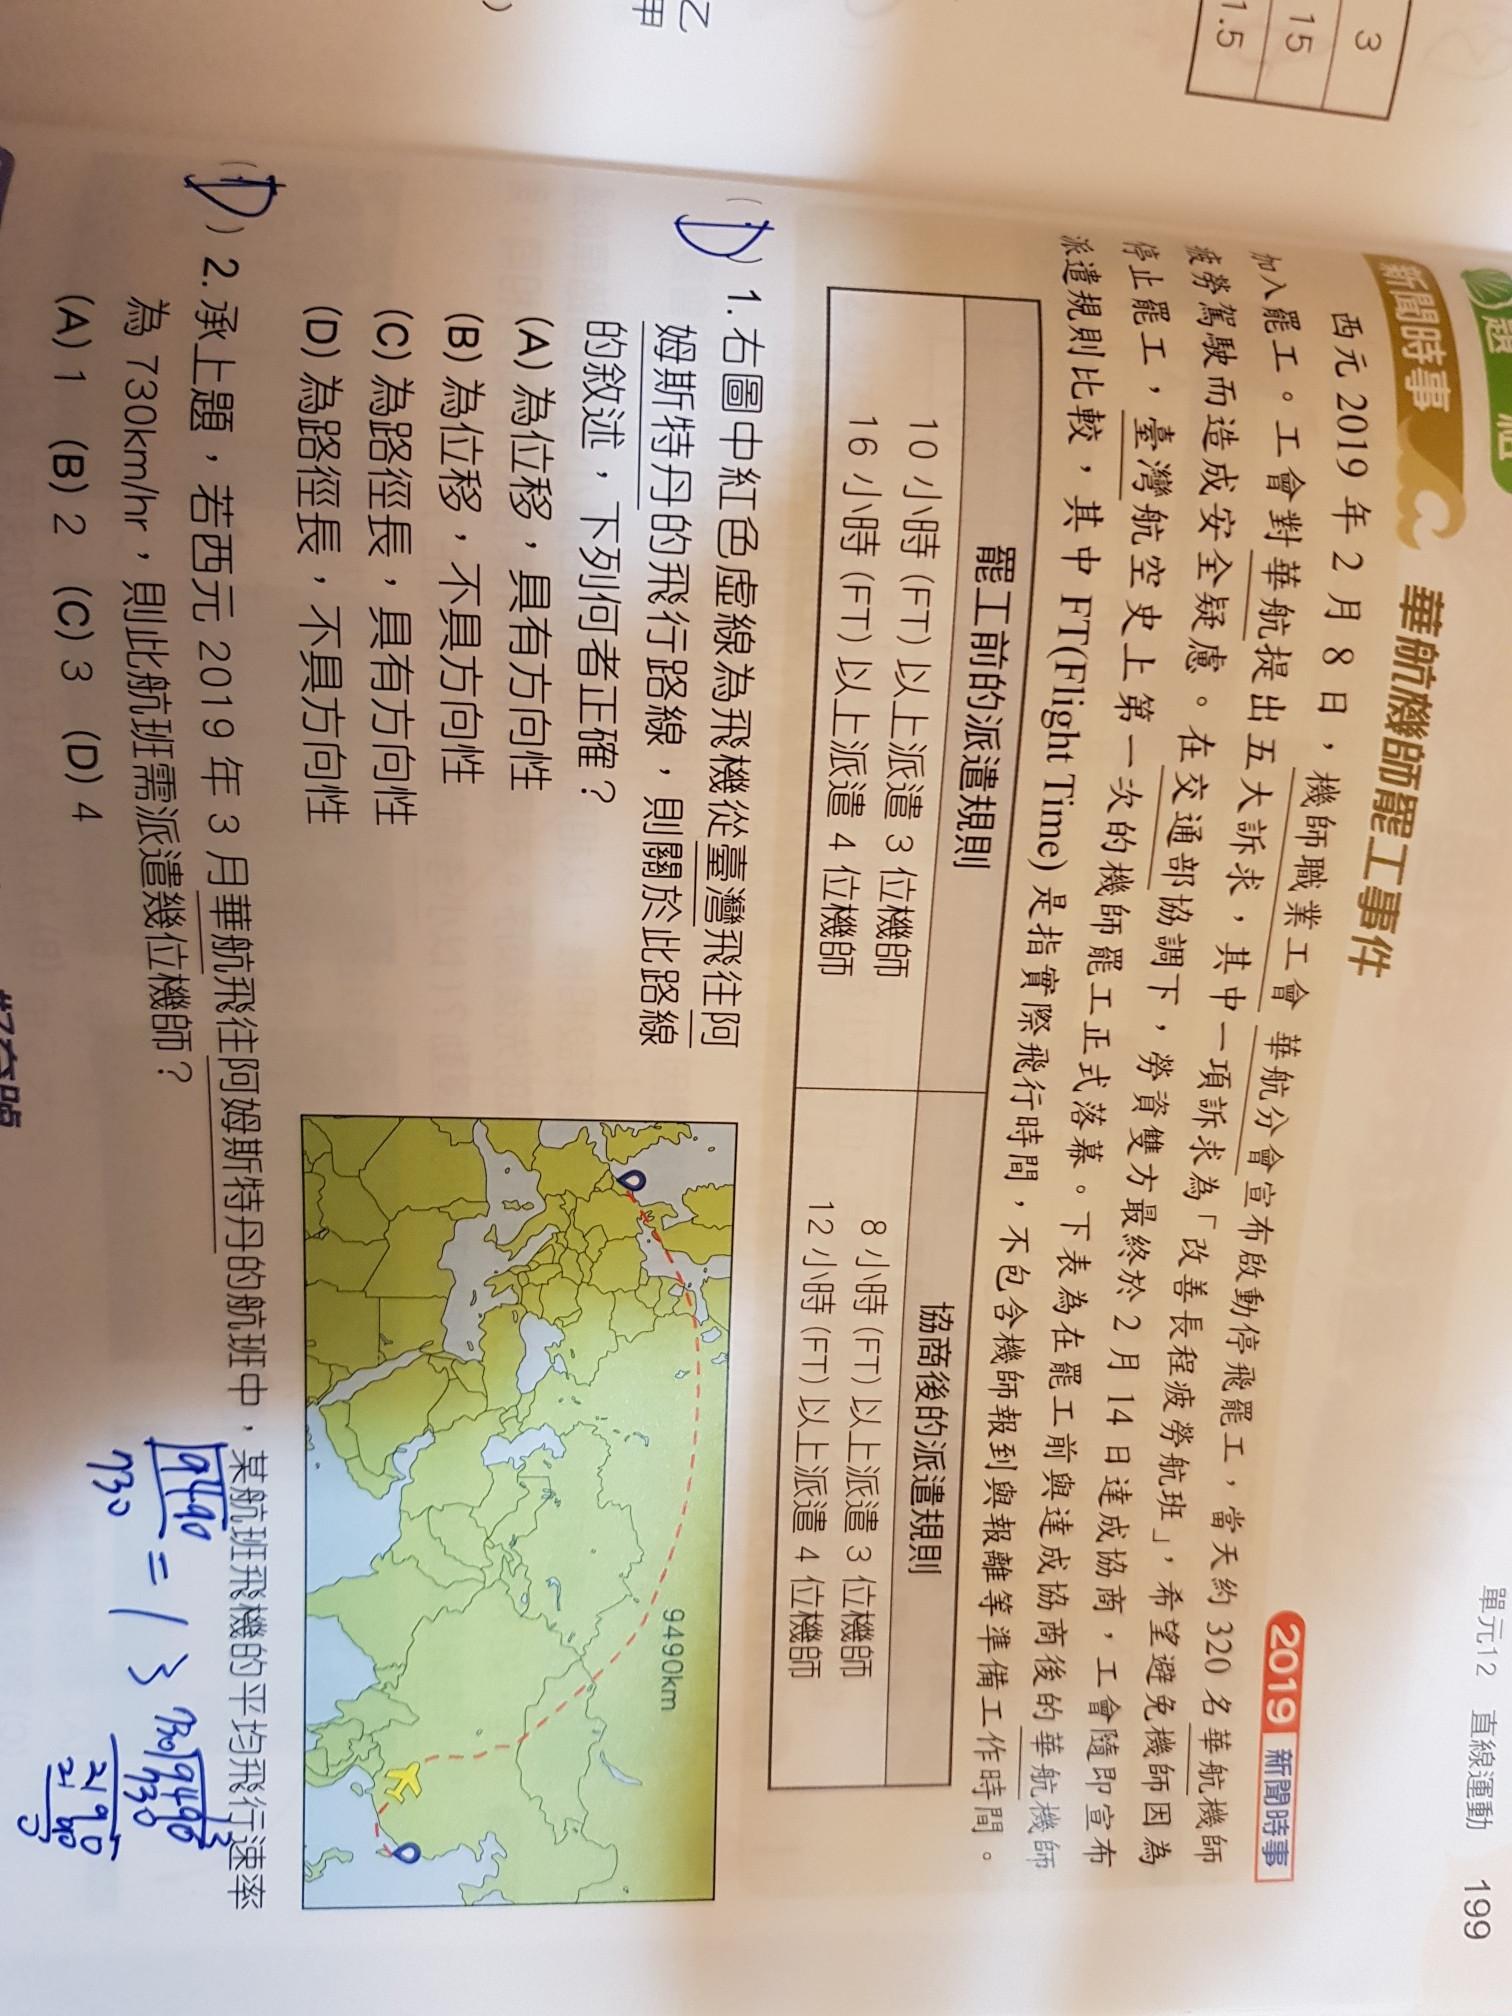 3
15
1.5
乙
甲
單元12 直線運動 199
題 組
新聞時事 華航機師罷工事件 2019 新聞時事
西元 2019 年 2 月 8 日，機師職業工會 華航分會宣布啟動停飛罷工，當天約 320 名華航機師
加入罷工。工會對華航提出五大訴求，其中一項訴求為「改善長程疲勞航班」，希望避免機師因為
疲勞駕駛而造成安全疑慮。在交通部協調下，勞資雙方最終於 2 月 14 日達成協商，工會隨即宣布
停止罷工，臺灣航空史上第一次的機師罷工正式落幕。下表為在罷工前與達成協商後的華航機師
派遣規則比較，其中 FT(Flight Time) 是指實際飛行時間，不包含機師報到與報離等準備工作時間。
罷工前的派遣規則 協商後的派遣規則
10 小時 (FT) 以上派遣 3 位機師 8 小時 (FT) 以上派遣 3 位機師
16 小時 (FT) 以上派遣 4 位機師 12 小時 (FT) 以上派遣 4 位機師
(D) 1. 右圖中紅色虛線為飛機從臺灣飛往阿
姆斯特丹的飛行路線，則關於此路線
的敘述，下列何者正確？
(A) 為位移，具有方向性
(B) 為位移，不具方向性
(C) 為路徑長，具有方向性
(D) 為路徑長，不具方向性
9490km
(D) 2. 承上題，若西元 2019 年 3 月華航飛往阿姆斯特丹的航班中，某航班飛機的平均飛行速率
為 730km/hr，則此航班需派遣幾位機師？
(A) 1 (B) 2 (C) 3 (D) 4
9490
730
= 13
13
730 9490
730
2190
2190
0